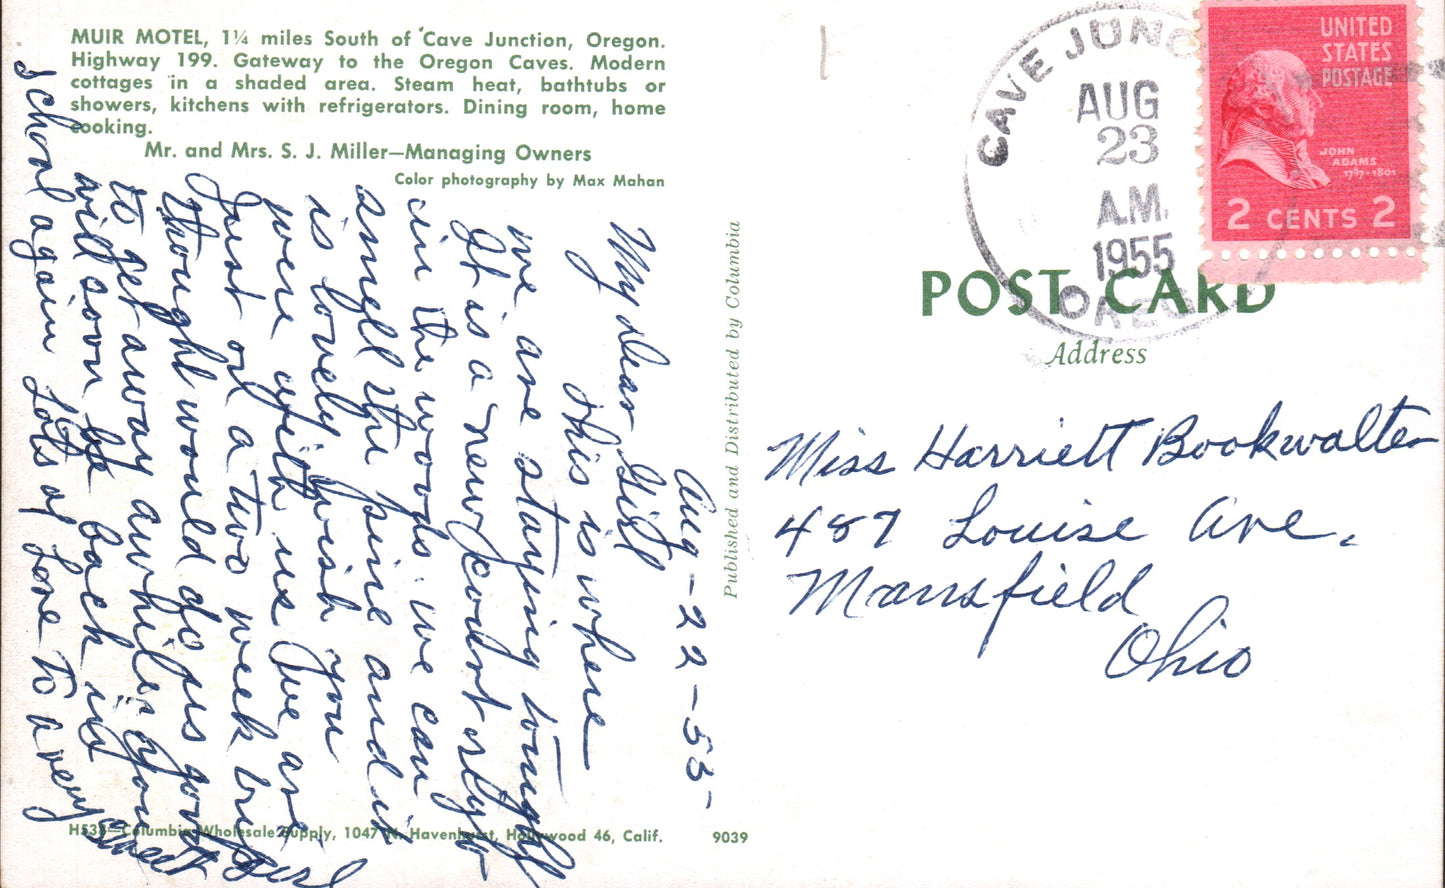 MUIR MOTEL, 1¼ miles South of Cave Junction, Oregon.
Highway 199. Gateway to the Oregon Caves. Modern
cottages in a shaded area. Steam heat, bathtubs or
showers, kitchens with refrigerators. Dining room, home
cooking.
Mr. and Mrs. S. J. Miller—Managing Owners
Color photography by Max Mahan
Aug-22-55-
My dear Girl
This is where
we are staying tonight
It is a new court
in the woods we can
smell the pine and it
is lovely wish you
were with us we are
Just on a two week trip
thought would do us good
to get away awhile. you
will soon be back in
school again Lots of Love to a very
sweet girl
Published and Distributed by Columbia
HS38—Columbia Wholesale Supply, 1047 N. Havenhurst, Hollywood 46, Calif.
9039
CAVE JUNC
AUG
23
A.M.
1955
OREG
UNITED
STATES
POSTAGE
JOHN
ADAMS
1797-1801
2 CENTS 2
POST CARD
Address
Miss Harriett Bookwalter
487 Louise Ave.
Mansfield
Ohio